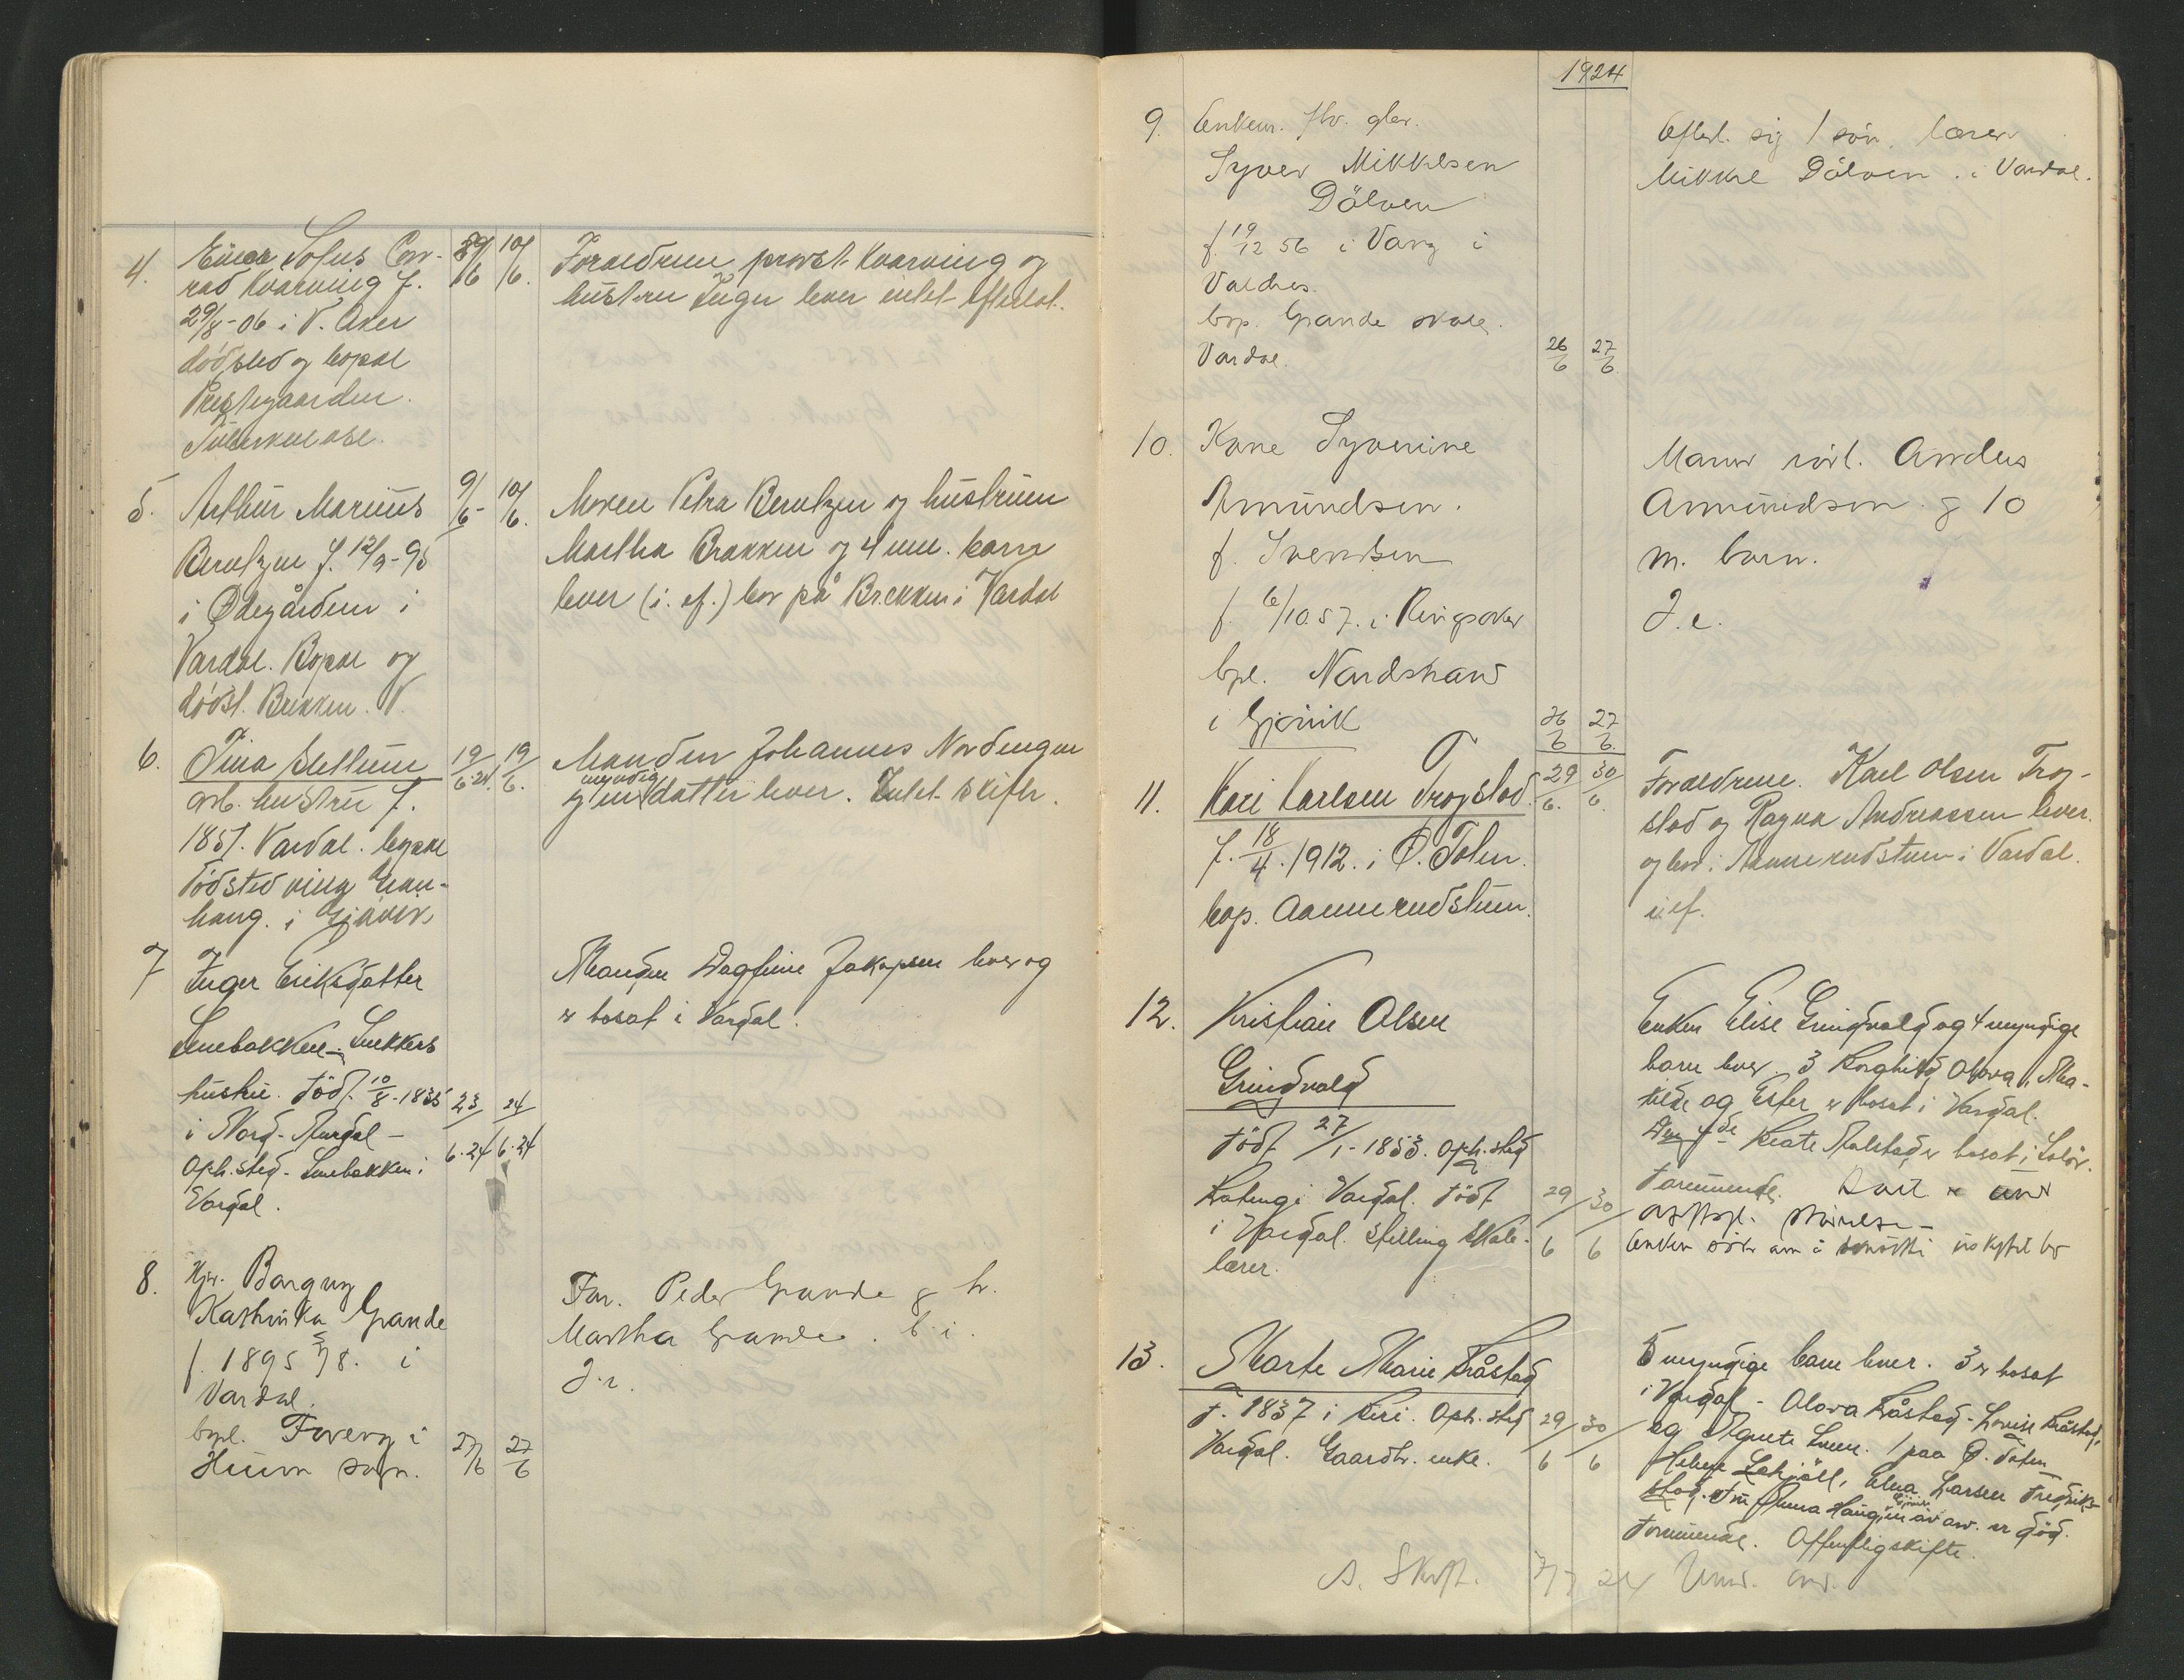 4. Einar Sofus Con-
rad Kvarving f.
29/8-06 i V. Aker
dødsted og bopæl
Prestegaarden.
Tuberkulose.
6 10/6.
Forældrene provst Kvarving og
hustru Inger lever intet efterlat.
5. Arthur Marius
Berntzen f. 12/9-95
i Ødegården i
Vardal. Bopæl og
dødst. Brekken. V.
9/6- 10/6.
Moren Petra Berntzen og hustruen
Martha Brekken og 4 um. barn
lever (i. ef.) bor på Brekken i Vardal
6. Tina
arb. hustru f.
1857. Vardal. bopæl
dødsted
haug. i Gjøvik
19/6.24. 19/6.
Manden Johannes Nordengen
myndig
og en datter lever. Intet skifte.
7 Inger Eriksdatter
Snebakken - Snekkers
hustru. Född. 10/8-1835
i Nord-Aurdal -
Oph.sted - Snebakken i
Vardal.
23/6.24 24/6.24
Manden Dagfinn Jakopsen lever og
er bosat i Vardal.
8. Bargny
Kathinka Grande
f. 1895 i
Vardal.
bopl. i
sogn.
27/6 27/6
Far. Peder Grande & h.
Martha Grande. b. i.
J. e.
1924
9. Enkem. fhv. gler.
Syver Mikkelsen
Dölven
f. 19/12 56 i Vang i
Valdres.
bop. Grande skole.
Vardal.
26/6 27/6
Efterl. sig 1 sön. lærer
Mikkel Dölven. i Vardal.
10. Kone Syverine
Amundsen.
f. Svendsen
f. 6/10.57. i Ringsaker
bpl. Nordstrand
i Gjövik
26/6 27/6.
Mann Anders
Ammundsen. & 10
m. barn.
J. e.
11. Kari Karlsen Trogstad.
f. 18/4. 1912. i Ø. Toten.
bop. Aannerudstuen.
29/6. 30/6.
Forældrene. Karl Olsen Trog-
stad og Ragna Andreassen lever.
og bor i Aannerudstuen i Vardal.
i. ef.
12. Kristian Olsen
Grindvold
Född 27/1-1853. Oph.sted
i Vardal. Född
i Vardal. Stilling Skole-
lærer.
29/6 30/6
Enken Elise Grindvold og 4 myndige
barn lever. 3 Borghild, Olava, Ma-
tilde og Ester er bosat i Vardal.
Den 4de Beate er bosat i Solør.
Formuende.
Enken
13. Marte Marie Bråstad
F. 1837 i Biri. Oph.sted
Vardal. Gaardbr. enke.
29/6 30/6
5 myndige barn lever. 3 er bosat
i Vardal - Olava Bråstad - Lovise Bråstad,
og Agnete Lunn. 1 paa Ø. Toten
Helene Elna Larsen Fredrik-
stad. Fru Anna Haug, er död.
Formuende. Offentlig skifte.
S. Skift. 7/7 24